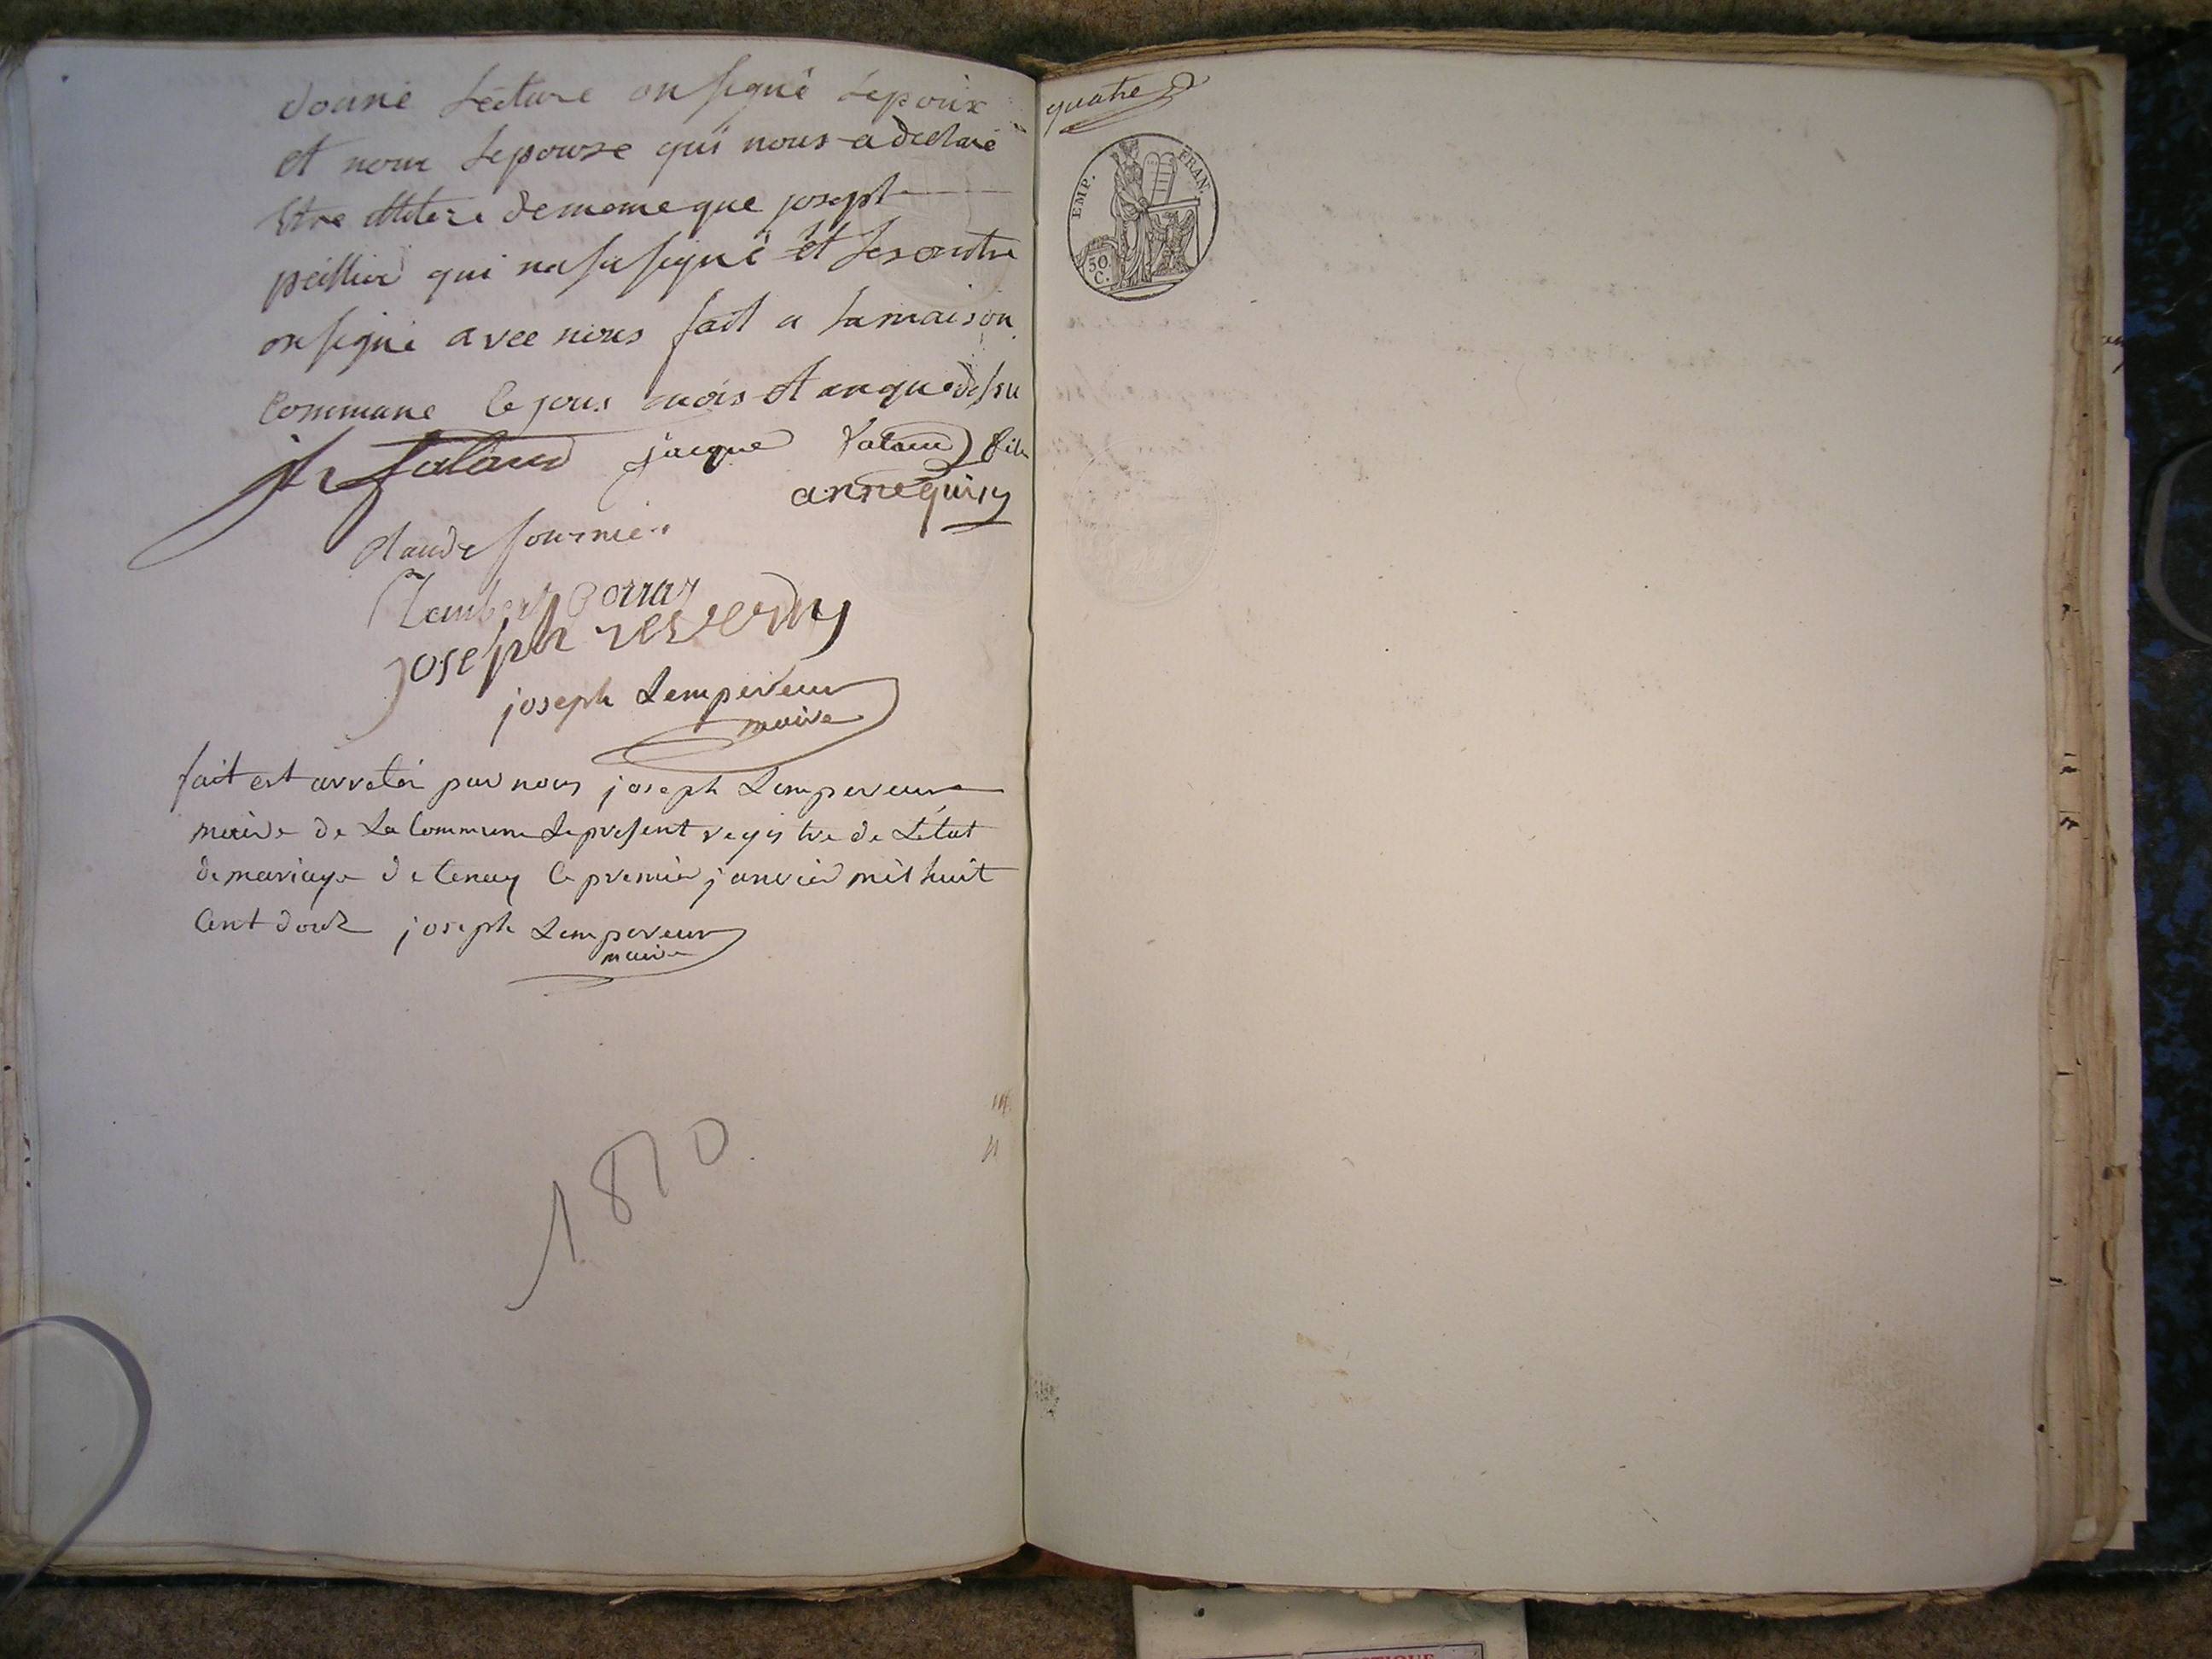 donné Lecture on signé Lepoux
et non Lepouse qui nous a declaré
Etre illitere de meme que joseph
peillier qui na su signé et les autre
on signé avec nous fait a la maison
commune le jour mois et an que dessu
jh falaud jacque falaud fils
annequin
Claude fournier
Lambert
joseph reverdy
joseph Lempereur
maire
fait est arretér par nous joseph Lempereur
maire de La Commune Le present registre de L'état
de mariage de tenay le premier janvier mil huit
Cent douze joseph Lempereur
maire
1810
quatre
EMP. FRAN.
50.
C.